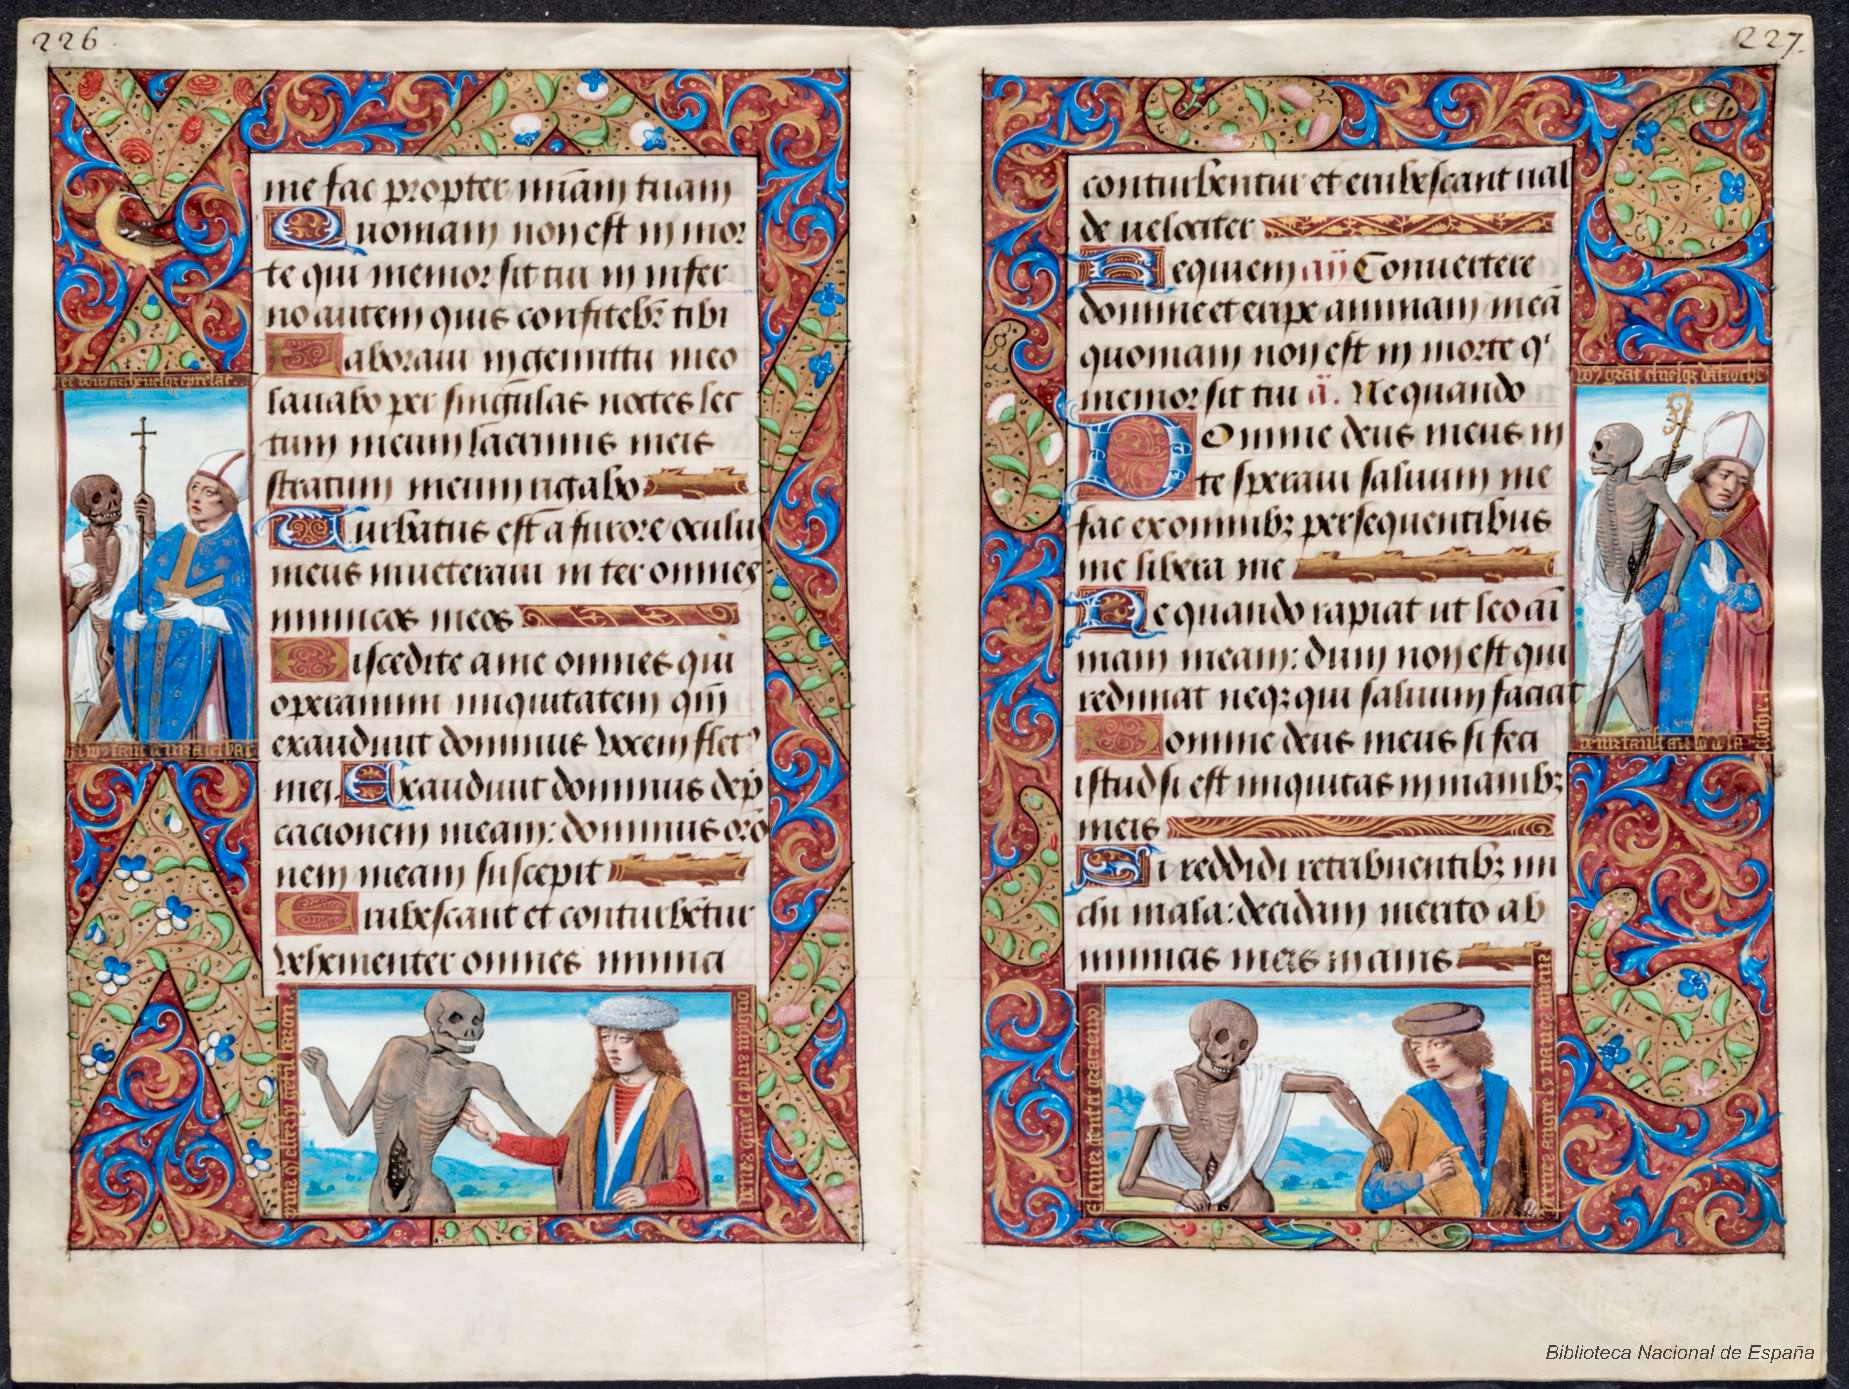 226
me fac propter mīam tuam
Quoniam non est in mor
te qui memor sit tui in infer
no autem quis confitebꝫ tibi
Laboraui in gemittu meo
lauabo per singulas noctes lec
tum meum lacrimis meis
stratum meum rigabo
Turbatus est a furore oculus
meus inueteraui inter omnes
inimicos meos
Discedite a me omnes qui
operamini iniquitatem qm̄
exaudiuit dominus vocem flet⁹
mei. Exaudiuit dominus dep̄
cacionem meam: dominus oro
nem meam suscepit
Erubescant et conturbētur
vehementer omnes inimici
227.
conturbentur et erubescant ual
de uelociter
Requiem añ Conuertere
domine et eripe animam meā
quoniam non est in morte qͥ
memor sit tui a. Ne quando
Domine deus meus in
te speraui saluum me
fac ex omnibꝫ persequentibus
me libera me
Ne quando rapiat ut leo aī
mam meam: dum non est qui
redimat neqꝫ qui saluum faciat
Domine deus meus si feci
istud si est iniquitas in manibꝫ
meis
Si reddidi retribuentibꝫ mi
chi mala: decidam merito ab
inimicis meis inanis
Biblioteca Nacional de España